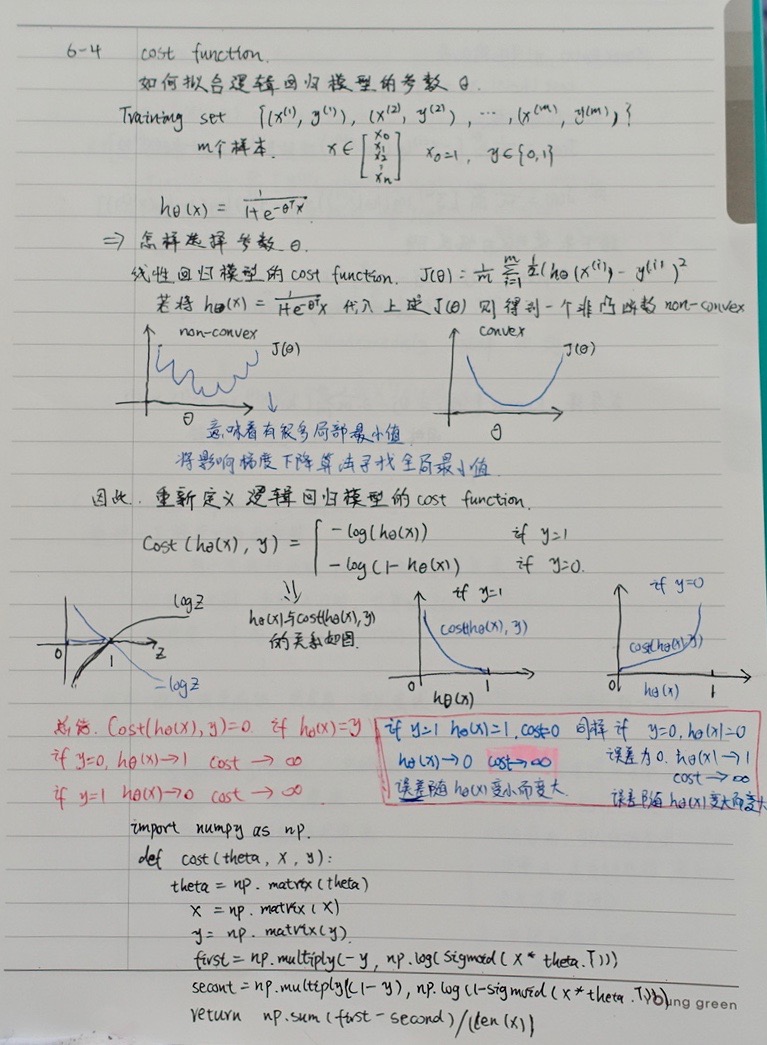 6-4 cost function.
如何拟合逻辑回归模型的参数 θ.
Training set {(x⁽¹⁾, y⁽¹⁾), (x⁽²⁾, y⁽²⁾), ⋯, (x⁽ᵐ⁾, y⁽ᵐ⁾)}
m个样本. x ∈ [x₀ x₁ x₂ ⋮ xₙ] x₀=1, y∈{0,1}
hθ(x) = 1/(1+e^(-θᵀx))
⇒ 怎样选择参数 θ.
线性回归模型的cost function. J(θ) = 1/m Σ_{i=1}^{m} 1/2 (hθ(x⁽ⁱ⁾) - y⁽ⁱ⁾)²
若将 hθ(x) = 1/(1+e^(-θᵀx)) 代入上述J(θ) 则得到一个非凸函数 non-convex
non-convex J(θ) θ
convex J(θ) θ
意味着有很多局部最小值
将影响梯度下降算法寻找全局最小值.
因此. 重新定义逻辑回归模型的cost function.
Cost(hθ(x), y) = { -log(hθ(x)) if y=1
-log(1-hθ(x)) if y=0.
logz 0 1 z -logz
hθ(x)与cost(hθ(x), y)
的关系如图.
if y=1 cost(hθ(x), y) 0 1 hθ(x)
if y=0 cost(hθ(x), y) 0 hθ(x) 1
总结. Cost(hθ(x), y)=0 if hθ(x)=y
if y=0, hθ(x)→1 cost → ∞
if y=1 hθ(x)→0 cost → ∞
if y=1 hθ(x)=1, cost=0
hθ(x)→0 cost→∞
误差随 hθ(x) 变小而变大.
同样 if y=0, hθ(x)=0
误差为0. hθ(x)→1
cost→∞
误差随 hθ(x) 变大而变大
import numpy as np.
def cost(theta, X, y):
theta = np.matrix(theta)
X = np.matrix(X)
y = np.matrix(y)
first = np.multiply(-y, np.log(sigmoid(X* theta.T)))
secont = np.multiply((1-y), np.log(1-sigmoid(X*theta.T)))
return np.sum(first-second)/(len(X))
ung green